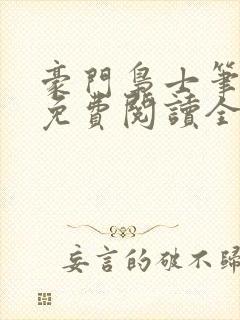 豪門鳥士筆
免費閱讀全
妄言的破不歸